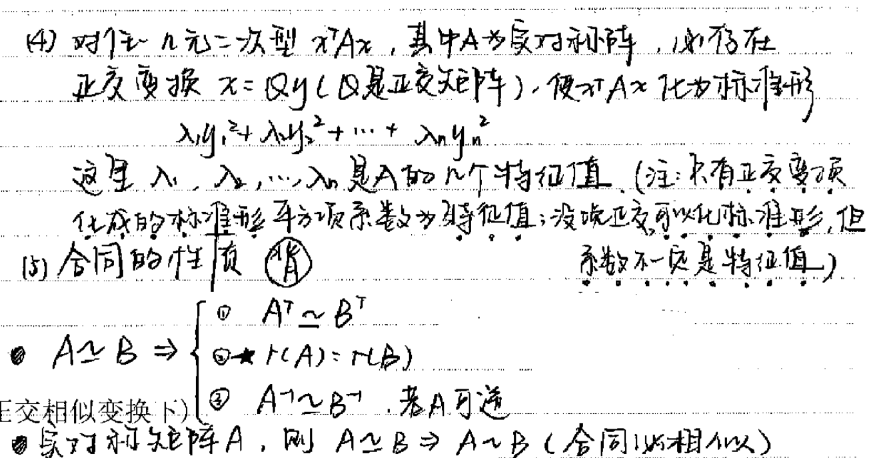 (4) 对任一 n元二次型 xᵀAx,其中A为实对称阵,必存在
正交变换 x=Qy(Q是正交矩阵),使xᵀAx 化为标准形
λ₁y₁²+λ₂y₂²+…+λₙyₙ²
这里 λ₁,λ₂,…,λₙ是A的n个特征值.(注:只有正交变换
化成的标准型平方项系数为特征值;没说正交,可以化标准型,但
系数不一定是特征值)
(5) 合同的性质 (背)
A≃B ⇒ { ① Aᵀ≃Bᵀ
②★ r(A)=r(B)
③ A⁻¹≃B⁻¹,若A可逆
正交相似变换下)
实对称矩阵A,则 A≃B ⇒ A~B(合同必相似)